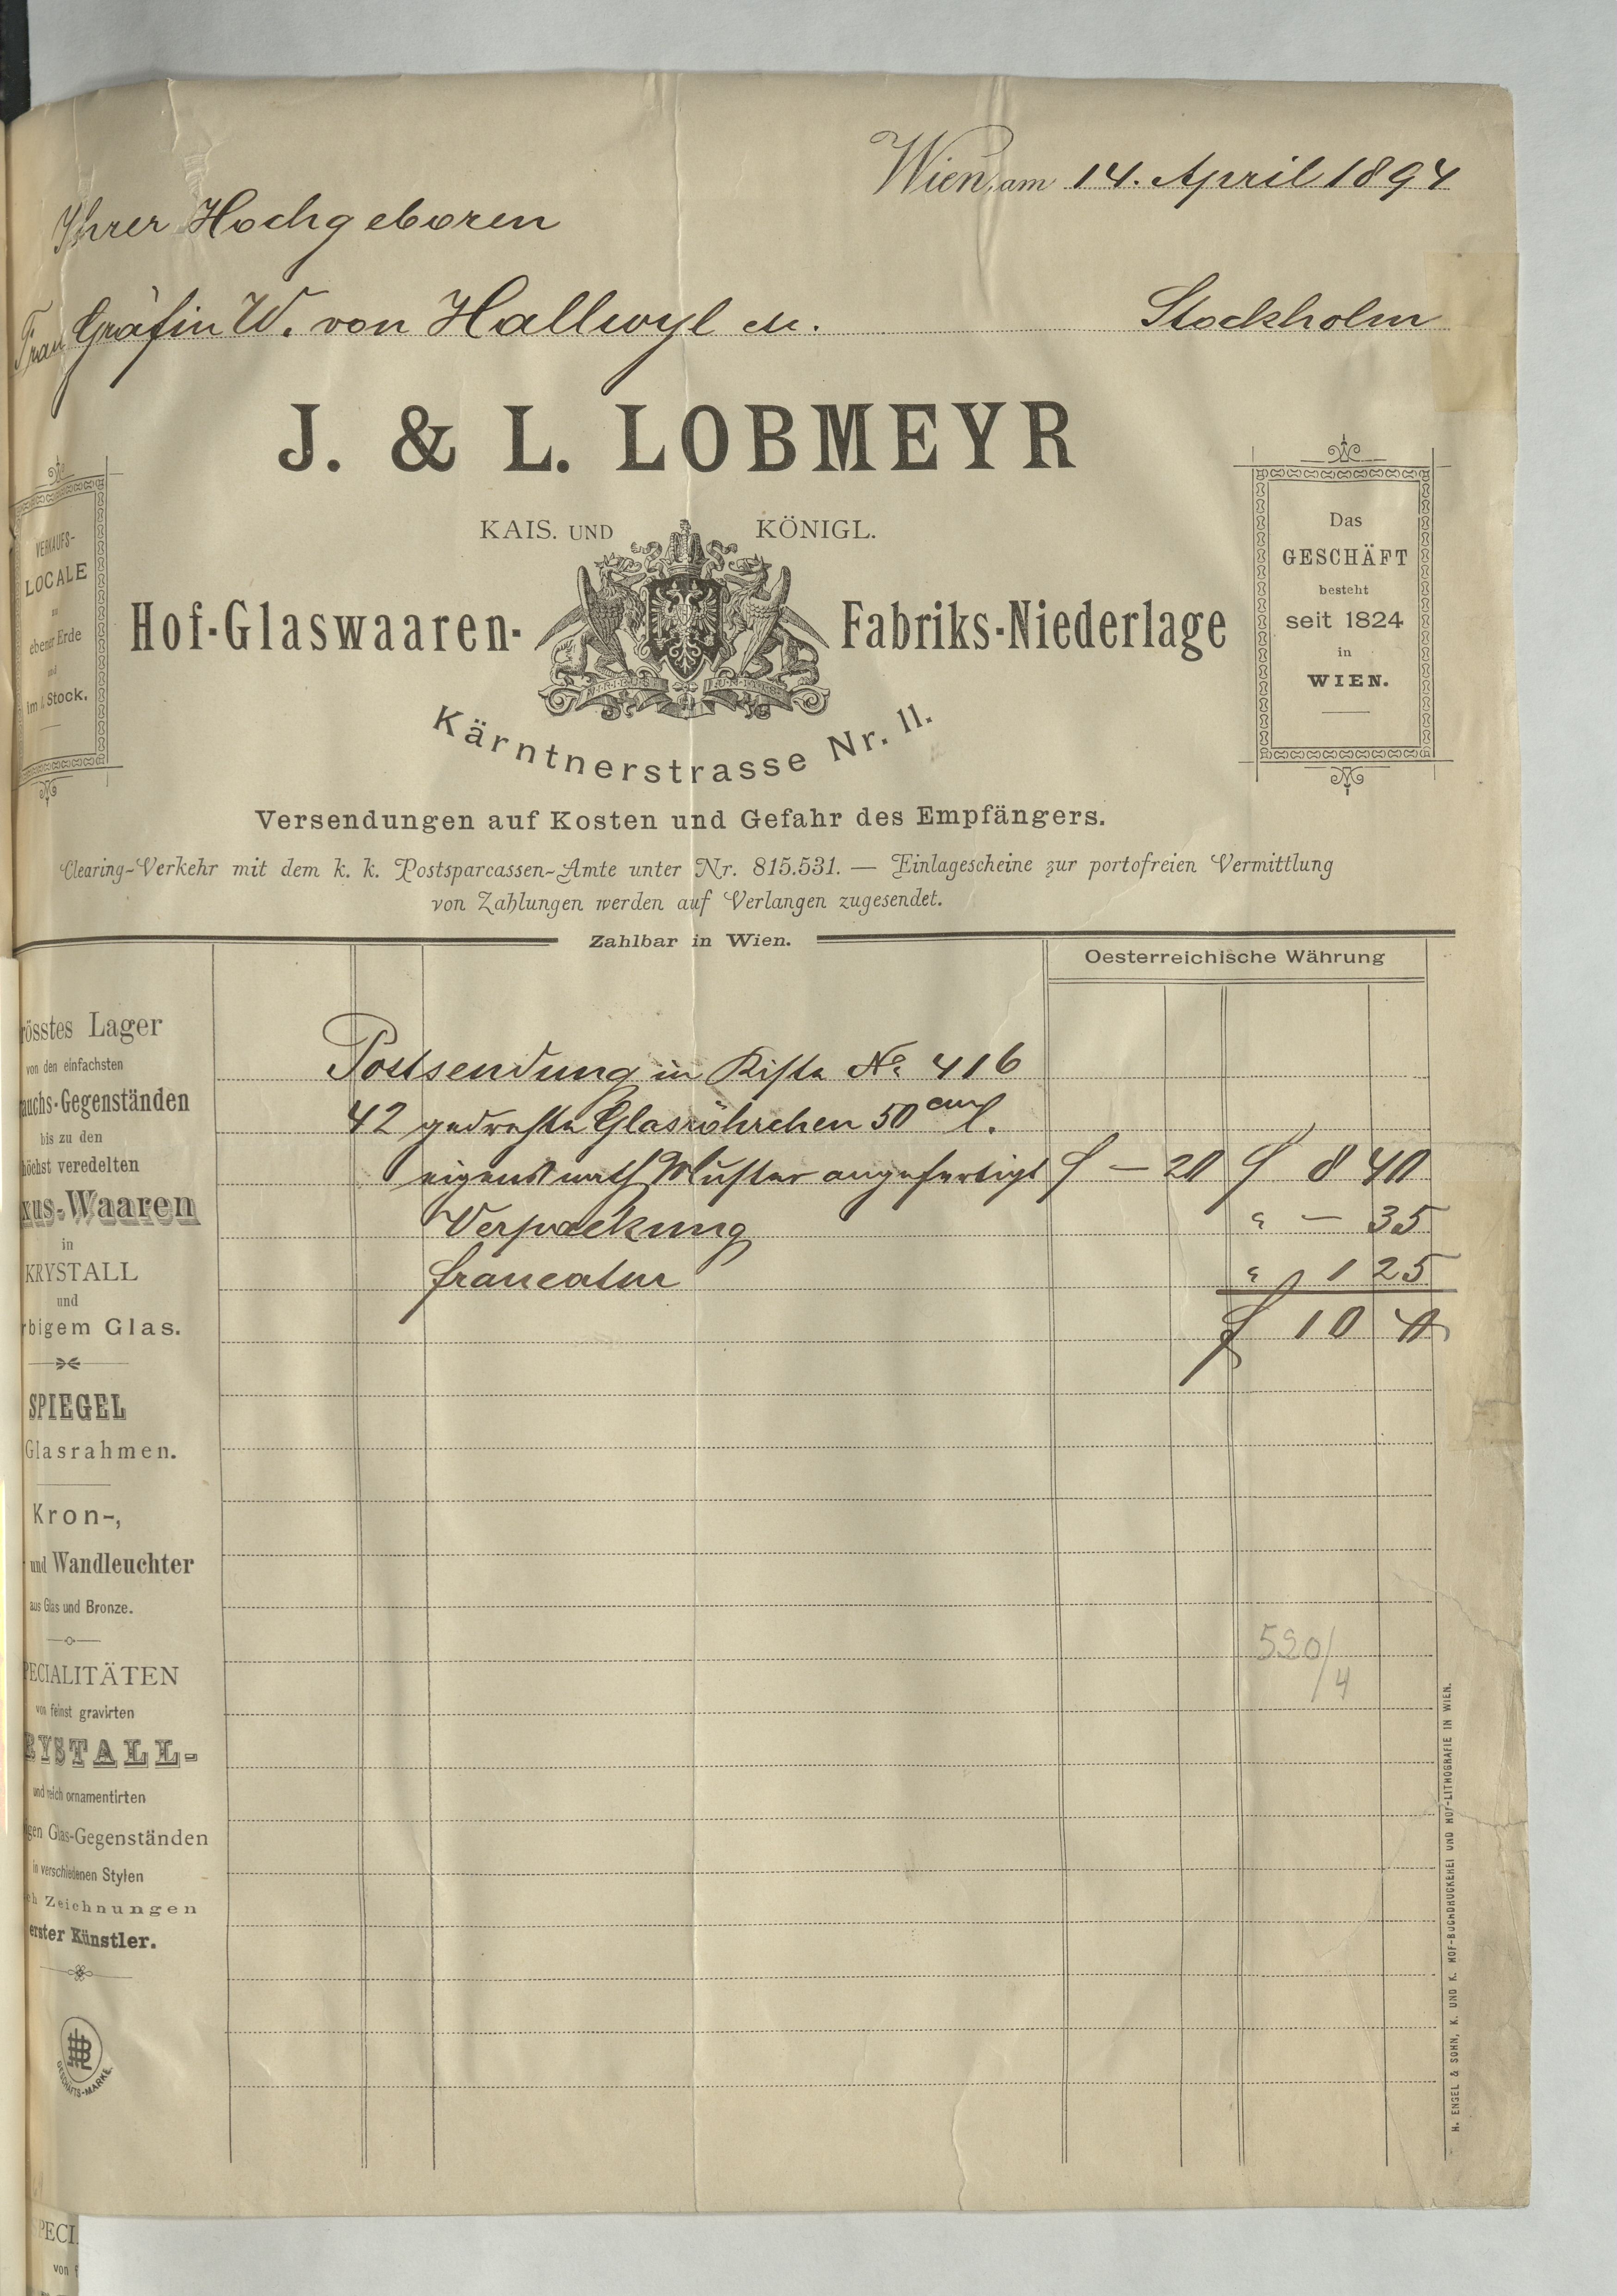 Wien, am 14. April 1894
Ihrer Hochgeboren
Frau Gräfin W. von Hallwyl etc. Stockholm
J. & L. LOBMEYR
KAIS. UND KÖNIGL.
Hof-Glaswaaren- Fabriks-Niederlage
Kärntnerstrasse Nr. 11.
VERKAUFS-
LOCALE
zu
ebener Erde
und
im I. Stock.
Das
GESCHÄFT
besteht
seit 1824
in
WIEN.
Versendungen auf Kosten und Gefahr des Empfängers.
Clearing-Verkehr mit dem k. k. Postsparcassen-Amte unter Nr. 815.531. — Einlagescheine zur portofreien Vermittlung
von Zahlungen werden auf Verlangen zugesendet.
Zahlbar in Wien.
Oesterreichische Währung
Postsendung in Kiste No 416
42 gedrehte Glasröhrchen 50 cm l.
eigens nach Muster angefertigt f — 20 f 8 40
Verpackung " — 35
francatur " 1 25
f 10 —
520/4
össtes Lager
von den einfachsten
auchs-Gegenständen
bis zu den
höchst veredelten
xus-Waaren
in
KRYSTALL
und
rbigem Glas.
SPIEGEL
Glasrahmen.
Kron-,
und Wandleuchter
aus Glas und Bronze.
PECIALITÄTEN
von feinst gravirten
RYSTALL-
und reich ornamentirten
igen Glas-Gegenständen
in verschiedenen Stylen
ch Zeichnungen
erster Künstler.
GESCHÄFTS-MARKE.
H. ENGEL & SOHN, K. UND K. HOF-BUCHDRUCKEREI UND HOF-LITHOGRAFIE IN WIEN.
PECI
von f